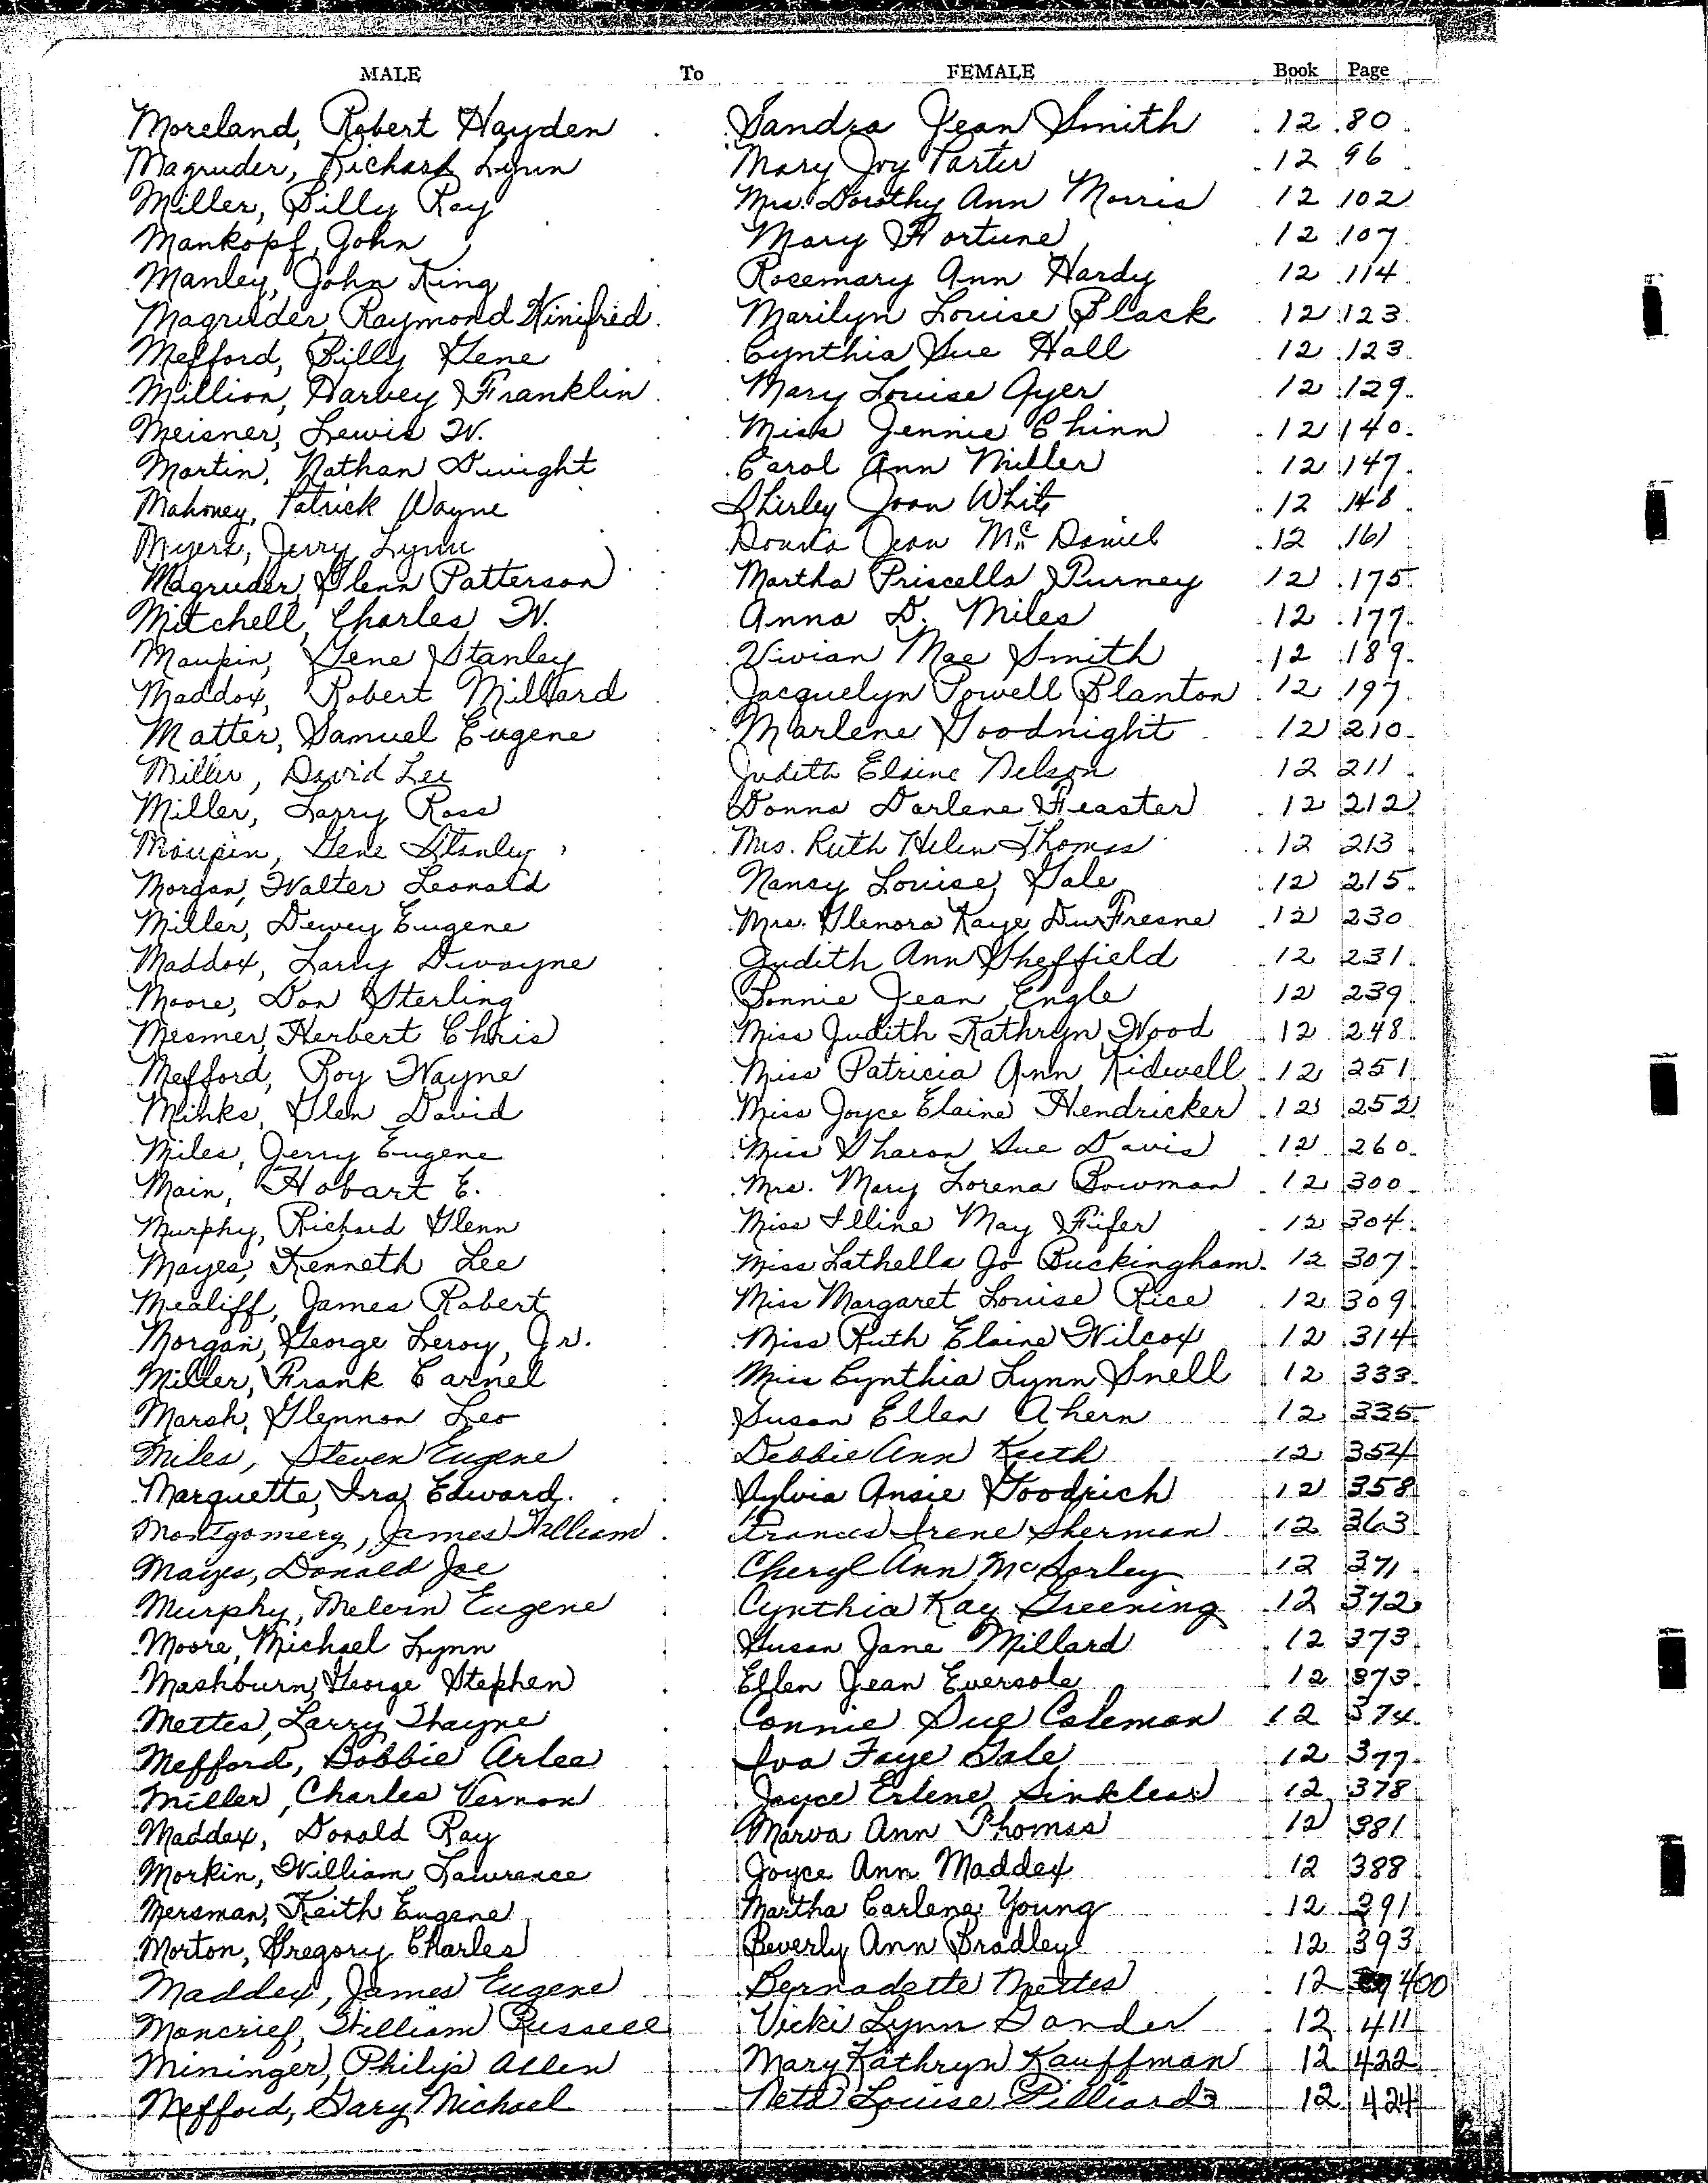 MALE To FEMALE Book Page
Moreland, Robert Hayden Sandra Jean Smith 12 80
Magruder, Richard Lynn Mary Joy Porter 12 96
Miller, Billy Ray Mrs. Dorothy Ann Morris 12 102
Mankopf, John Mary Fortune 12 107
Manley, John King Rosemary Ann Hardy 12 114
Magruder, Raymond Winifred Marilyn Louise Black 12 123
Mefford, Billy Gene Cynthia Sue Hall 12 123
Million, Harvey Franklin Mary Louise Ayer 12 129
Meisner, Lewis W. Miss Jennie Chinn 12 140
Martin, Nathan Dwight Carol Ann Miller 12 147
Mahoney, Patrick Wayne Shirley Joan White 12 148
Myers, Jerry Lynn Donna Jean McDaniel 12 161
Magruder, Glenn Patterson Martha Priscella Purney 12 175
Mitchell, Charles W. Anna D. Miles 12 177
Maupin, Gene Stanley Vivian Mae Smith 12 189
Maddox, Robert Millard Jacquelyn Powell Blanton 12 197
Matter, Samuel Eugene Marlene Goodnight 12 210
Miller, David Lee Judith Elaine Nelson 12 211
Miller, Larry Ross Donna Darlene Feaster 12 212
Maupin, Gene Stanley Mrs. Ruth Helen Thomas 12 213
Morgan, Walter Leonard Nancy Louise Gale 12 215
Miller, Dewey Eugene Mrs. Glenora Kaye DuFresne 12 230
Maddox, Larry Dwayne Judith Ann Sheffield 12 231
Moore, Don Sterling Bonnie Jean Engle 12 239
Mesmer, Herbert Chris Miss Judith Kathryn Wood 12 248
Mefford, Roy Wayne Miss Patricia Ann Kidwell 12 251
Minks, Glen David Miss Joyce Elaine Hendricker 12 252
Miles, Jerry Eugene Miss Sharon Sue Davis 12 260
Main, Hobart E. Mrs. Mary Lorena Bowman 12 300
Murphy, Richard Glenn Miss Illine May Fifer 12 304
Mayes, Kenneth Lee Miss Lathella Jo Buckingham 12 307
Mealiff, James Robert Miss Margaret Louise Rice 12 309
Morgan, George Leroy, Jr. Miss Ruth Elaine Wilcox 12 314
Miller, Frank Carnel Miss Cynthia Lynn Snell 12 333
Marsh, Glennon Leo Susan Ellen Ahern 12 335
Miles, Steven Eugene Debbie Ann Keith 12 354
Marquette, Ira Edward Sylvia Ansie Goodrich 12 358
Montgomery, James William Frances Irene Sherman 12 363
Mayes, Donald Joe Cheryl Ann McSorley 12 371
Murphy, Melvin Eugene Cynthia Kay Greening 12 372
Moore, Michael Lynn Susan Jane Millard 12 373
Mashburn, George Stephen Ellen Jean Eversole 12 373
Mettes, Larry Thayne Connie Sue Coleman 12 374
Mefford, Bobbie Arlee Iva Faye Gale 12 377
Miller, Charles Vernon Joyce Erlene Sinklear 12 378
Maddex, Donald Ray Marva Ann Thomas 12 381
Morkin, William Lawrence Joyce Ann Maddex 12 388
Mersman, Keith Eugene Martha Carlene Young 12 391
Morton, Gregory Charles Beverly Ann Bradley 12 393
Maddex, James Eugene Bernadette Mettes 12 400
Moncrief, William Russell Vicki Lynn Gander 12 411
Mininger, Philip Allen Mary Kathryn Kauffman 12 422
Mefford, Gary Michael Neta Louise Pilliard 12 424